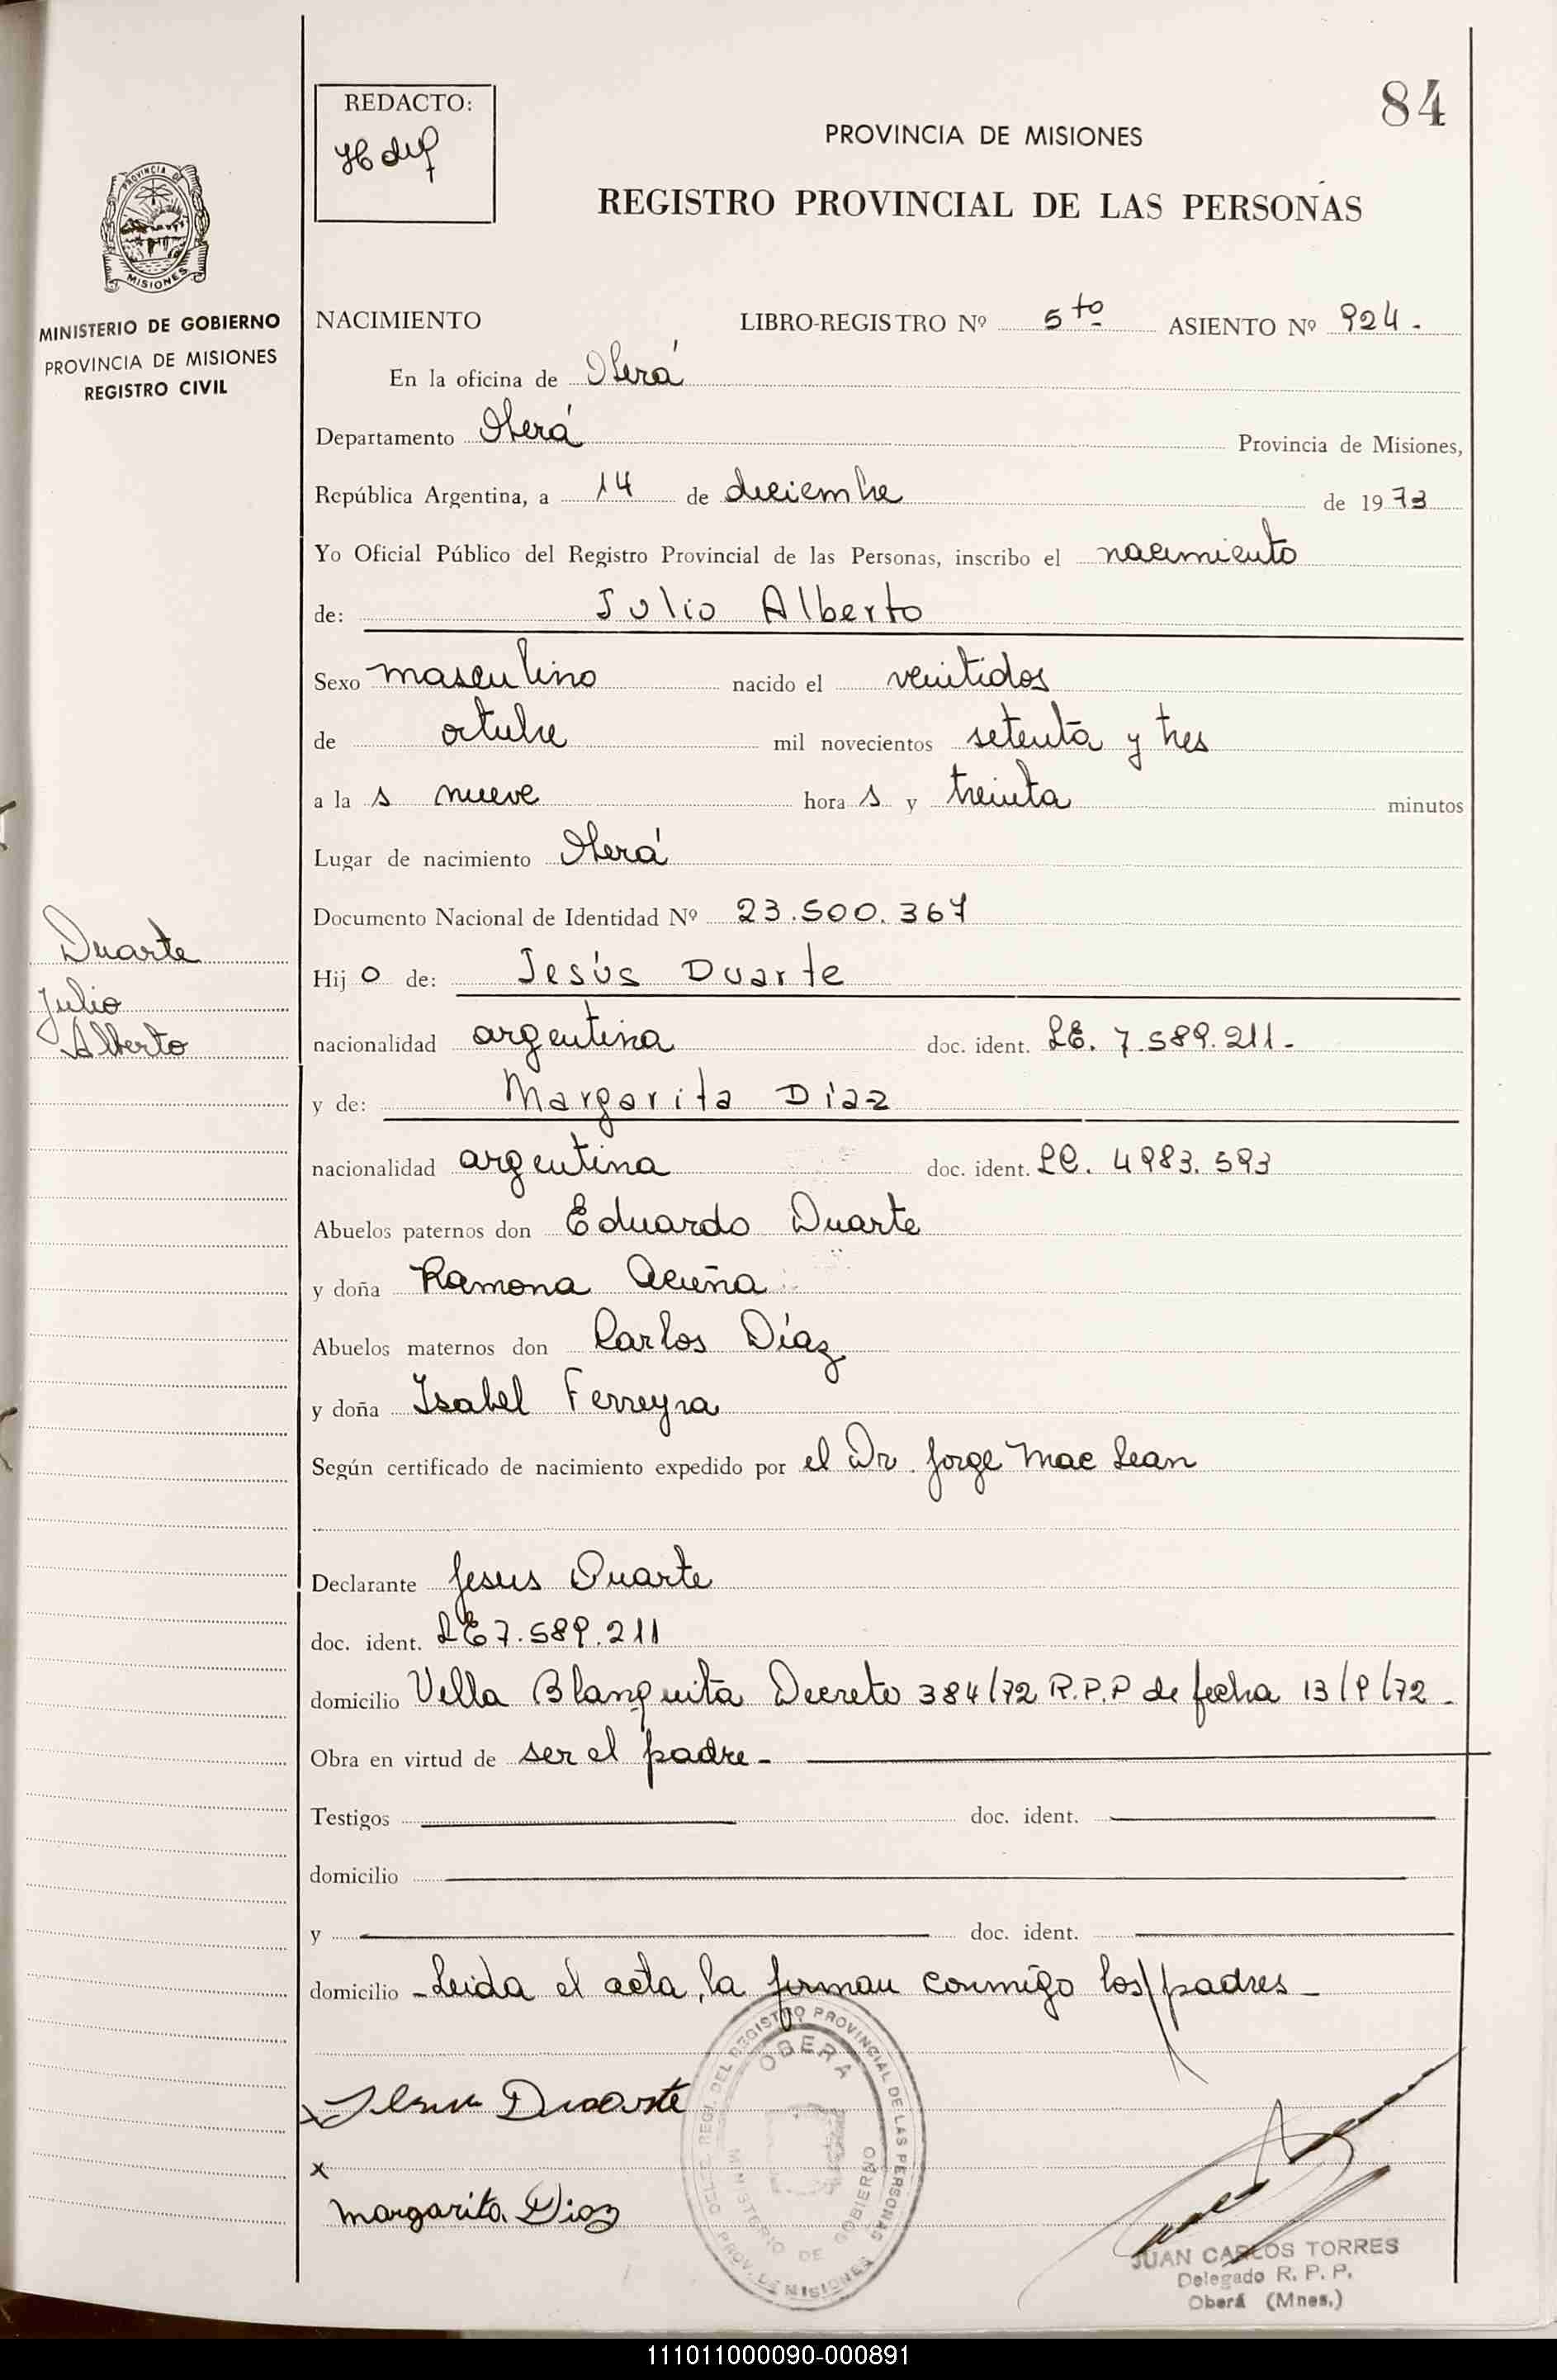 84
REDACTO:
PROVINCIA DE MISIONES
REGISTRO PROVINCIAL DE LAS PERSONAS
PROVINCIA DE
MISIONES
MINISTERIO DE GOBIERNO
PROVINCIA DE MISIONES
REGISTRO CIVIL
NACIMIENTO LIBRO-REGISTRO Nº 5to ASIENTO Nº 924.
En la oficina de Oberá
Departamento Oberá Provincia de Misiones,
República Argentina, a 14 de diciembre de 1973
Yo Oficial Público del Registro Provincial de las Personas, inscribo el nacimiento
de: Julio Alberto
Sexo masculino nacido el veintidos
de octubre mil novecientos setenta y tres
a la s nueve hora s y treinta minutos
Lugar de nacimiento Oberá
Documento Nacional de Identidad Nº 23.500.367
Duarte
Julio
Alberto
Hij o de: Jesús Duarte
nacionalidad argentina doc. ident. LE. 7.589.211-
y de: Margarita Díaz
nacionalidad argentina doc. ident. LC. 4983.593
Abuelos paternos don Eduardo Duarte
y doña Ramona Acuña
Abuelos maternos don Carlos Díaz
y doña Isabel Ferreyra
Según certificado de nacimiento expedido por el Dr. Jorge Mac Lean
Declarante Jesus Duarte
doc. ident. LE 7.589.211
domicilio Villa Blanquita Decreto 384/72 R.P.P de fecha 13/9/72-
Obra en virtud de ser el padre-
Testigos doc. ident.
domicilio
y doc. ident.
domicilio -Leida el acta, la firman conmigo los padres-
DEL REGISTRO PROVINCIAL DE LAS PERSONAS
OBERA
MINISTERIO DE GOBIERNO
PROV. DE MISIONES
x Jesus Duarte
x
Margarita Diaz
JUAN CARLOS TORRES
Delegado R. P. P.
Oberá (Mnes.)
111011000090-000891